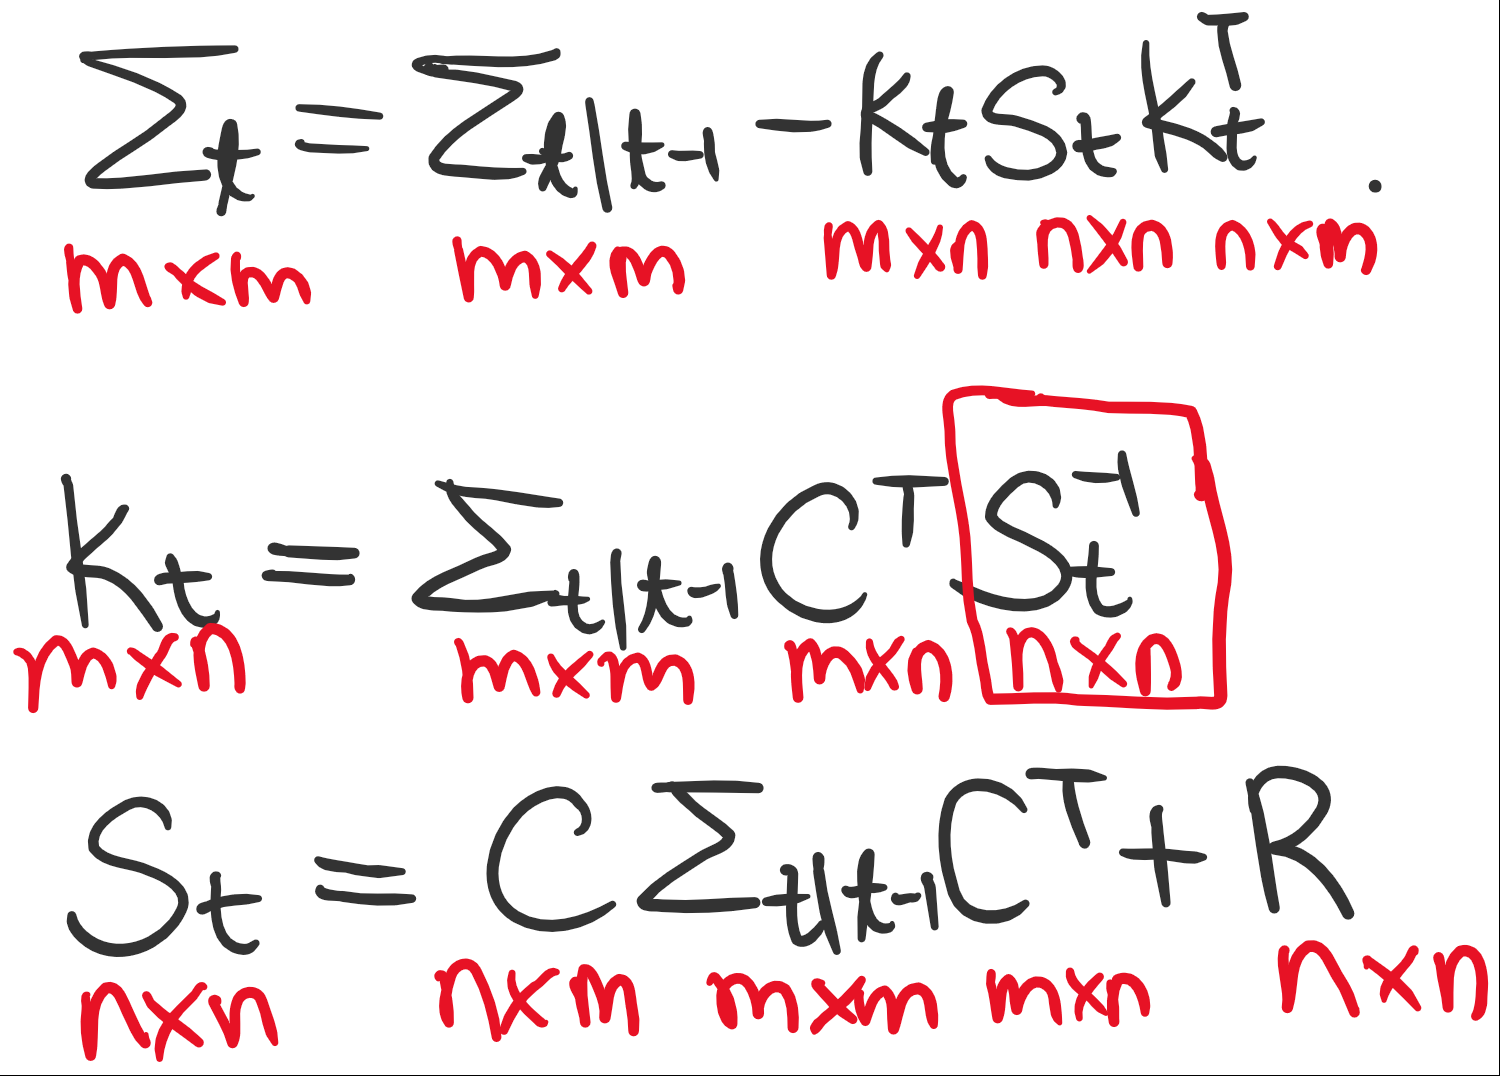 Σ_t = Σ_{t|t-1} - K_t S_t K_t^T .
m×m m×m m×n n×n n×m
K_t = Σ_{t|t-1} C^T S_t^{-1}
m×n m×m m×n n×n
S_t = C Σ_{t|t-1} C^T + R
n×n n×m m×m m×n n×n